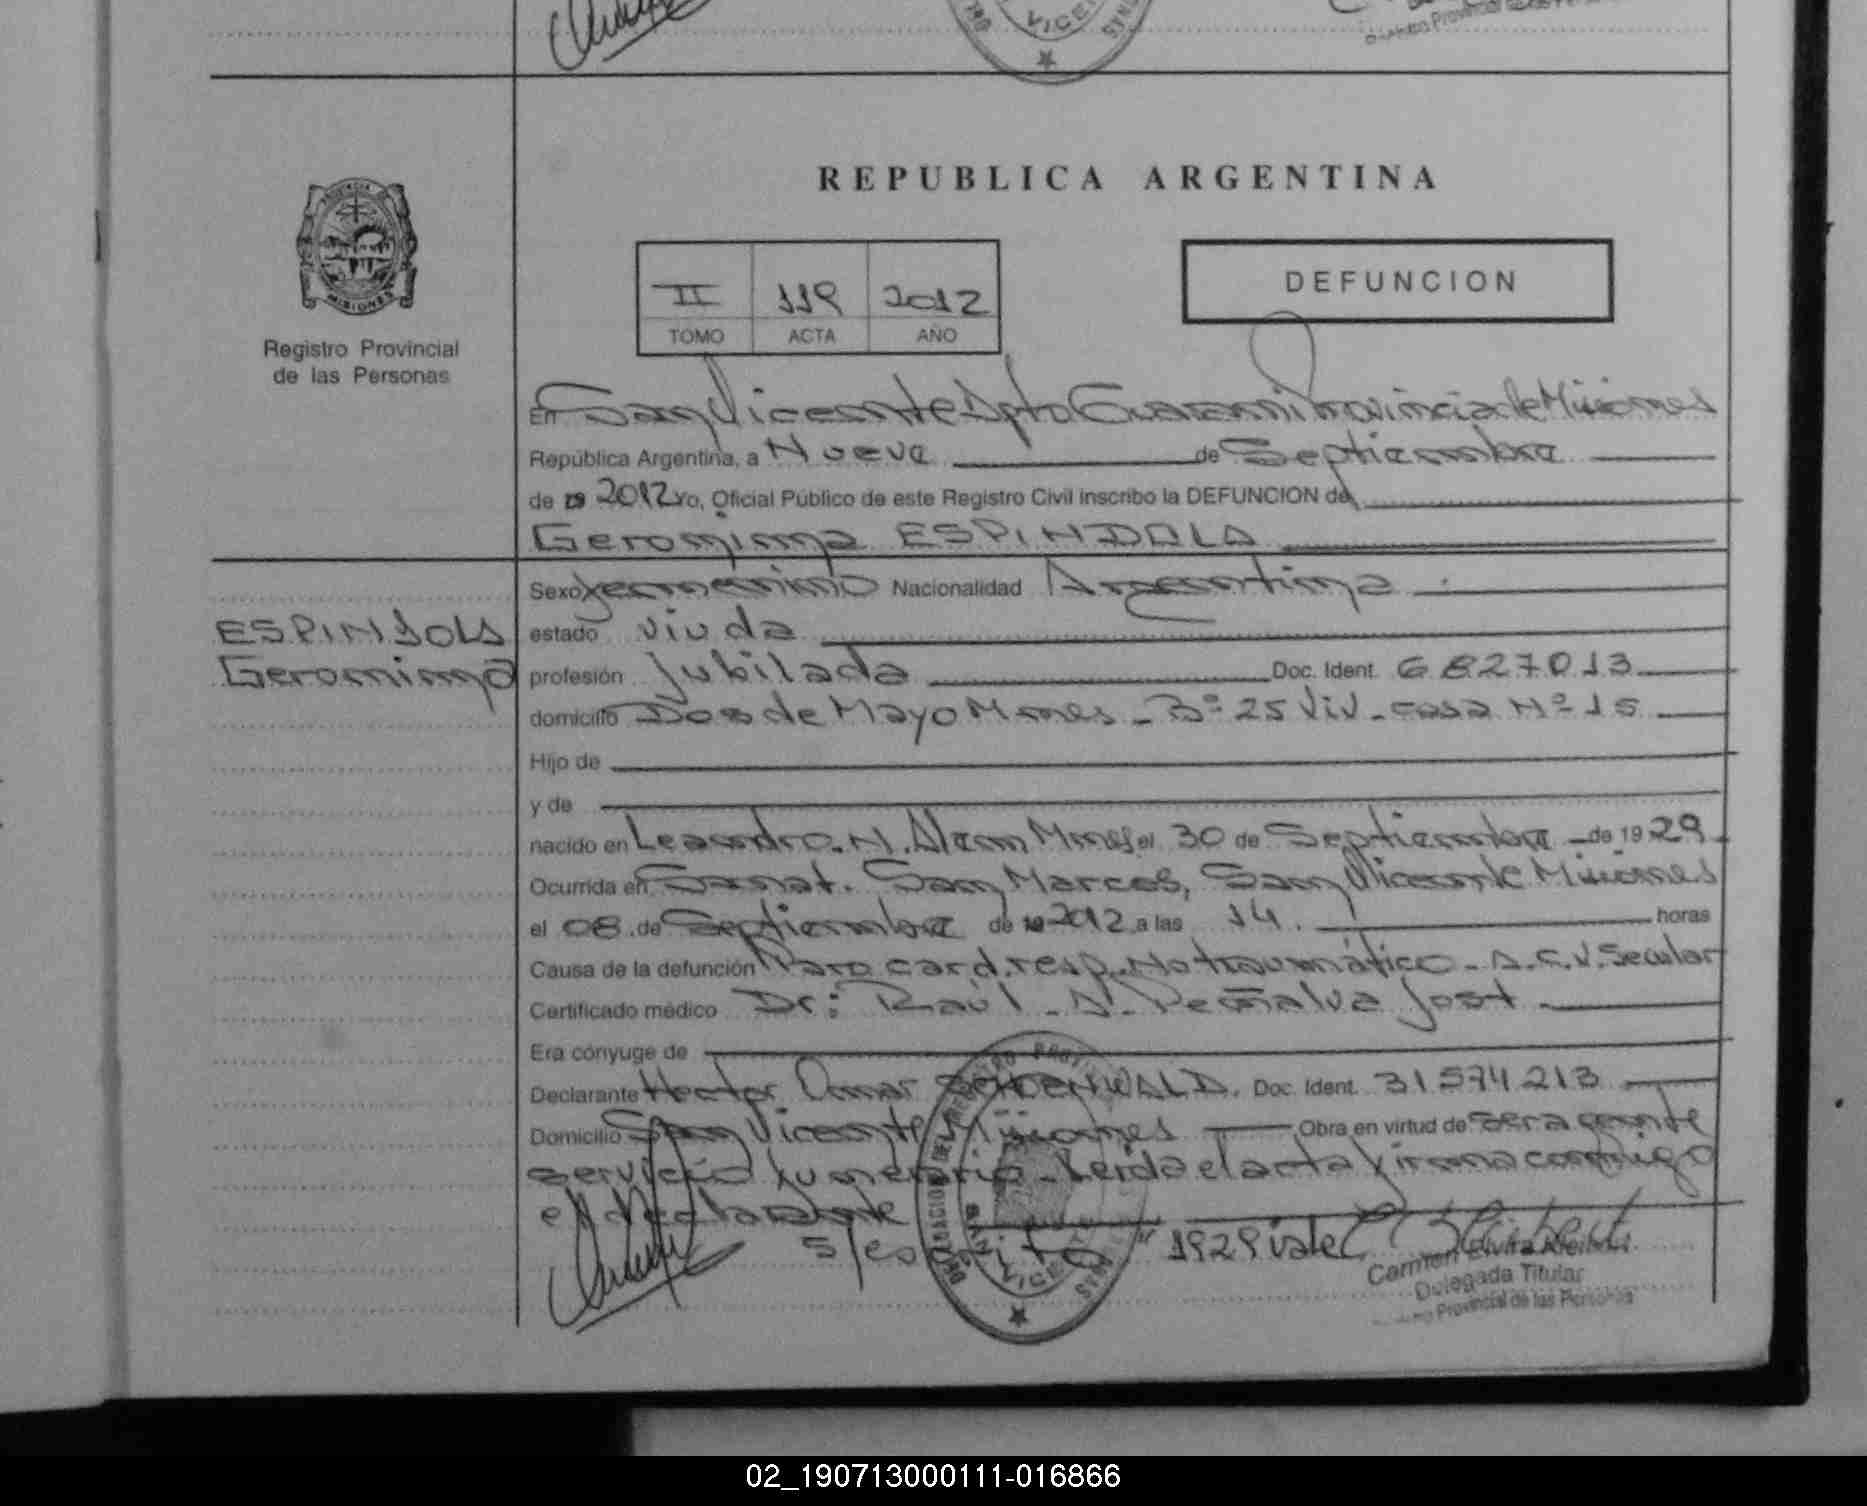 VICEN
REPUBLICA ARGENTINA
MISIONES
Registro Provincial
de las Personas
II 119 2012
TOMO ACTA AÑO
DEFUNCION
En San Vicente Dpto Guarani Provincia de Misiones
República Argentina, a Nueve de Septiembre
de 19 2012 Yo, Oficial Público de este Registro Civil inscribo la DEFUNCION de
Geronima ESPINDOLA
ESPINDOLA
Geronima
Sexo femenino Nacionalidad Argentina
estado viuda
profesión Jubilada Doc. Ident. 6827013
domicilio Dos de Mayo Mnes - Bº 25 Viv - casa Nº 15
Hijo de
y de
nacido en Leandro. N. Alem Mnes el 30 de Septiembre de 19 29
Ocurrida en Sanat. San Marcos, San Vicente Misiones
el 08 de Septiembre de 19 2012 a las 14. horas
Causa de la defunción Paro card. resp. No traumático - A.C.V. Secular
Certificado médico Dr: Raúl - A. Peñalva Jost
Era cónyuge de
Declarante Hector Omar SCHOENWALD. Doc. Ident. 31574213
Domicilio San Vicente Misiones Obra en virtud de ser agente
servicio funerario - Leida el acta firma conmigo
el declarante
s/escrito "1929 vale
Carmen Elvira
Delegada Titular
Provincial de las Personas
SAN VICENTE
02_190713000111-016866